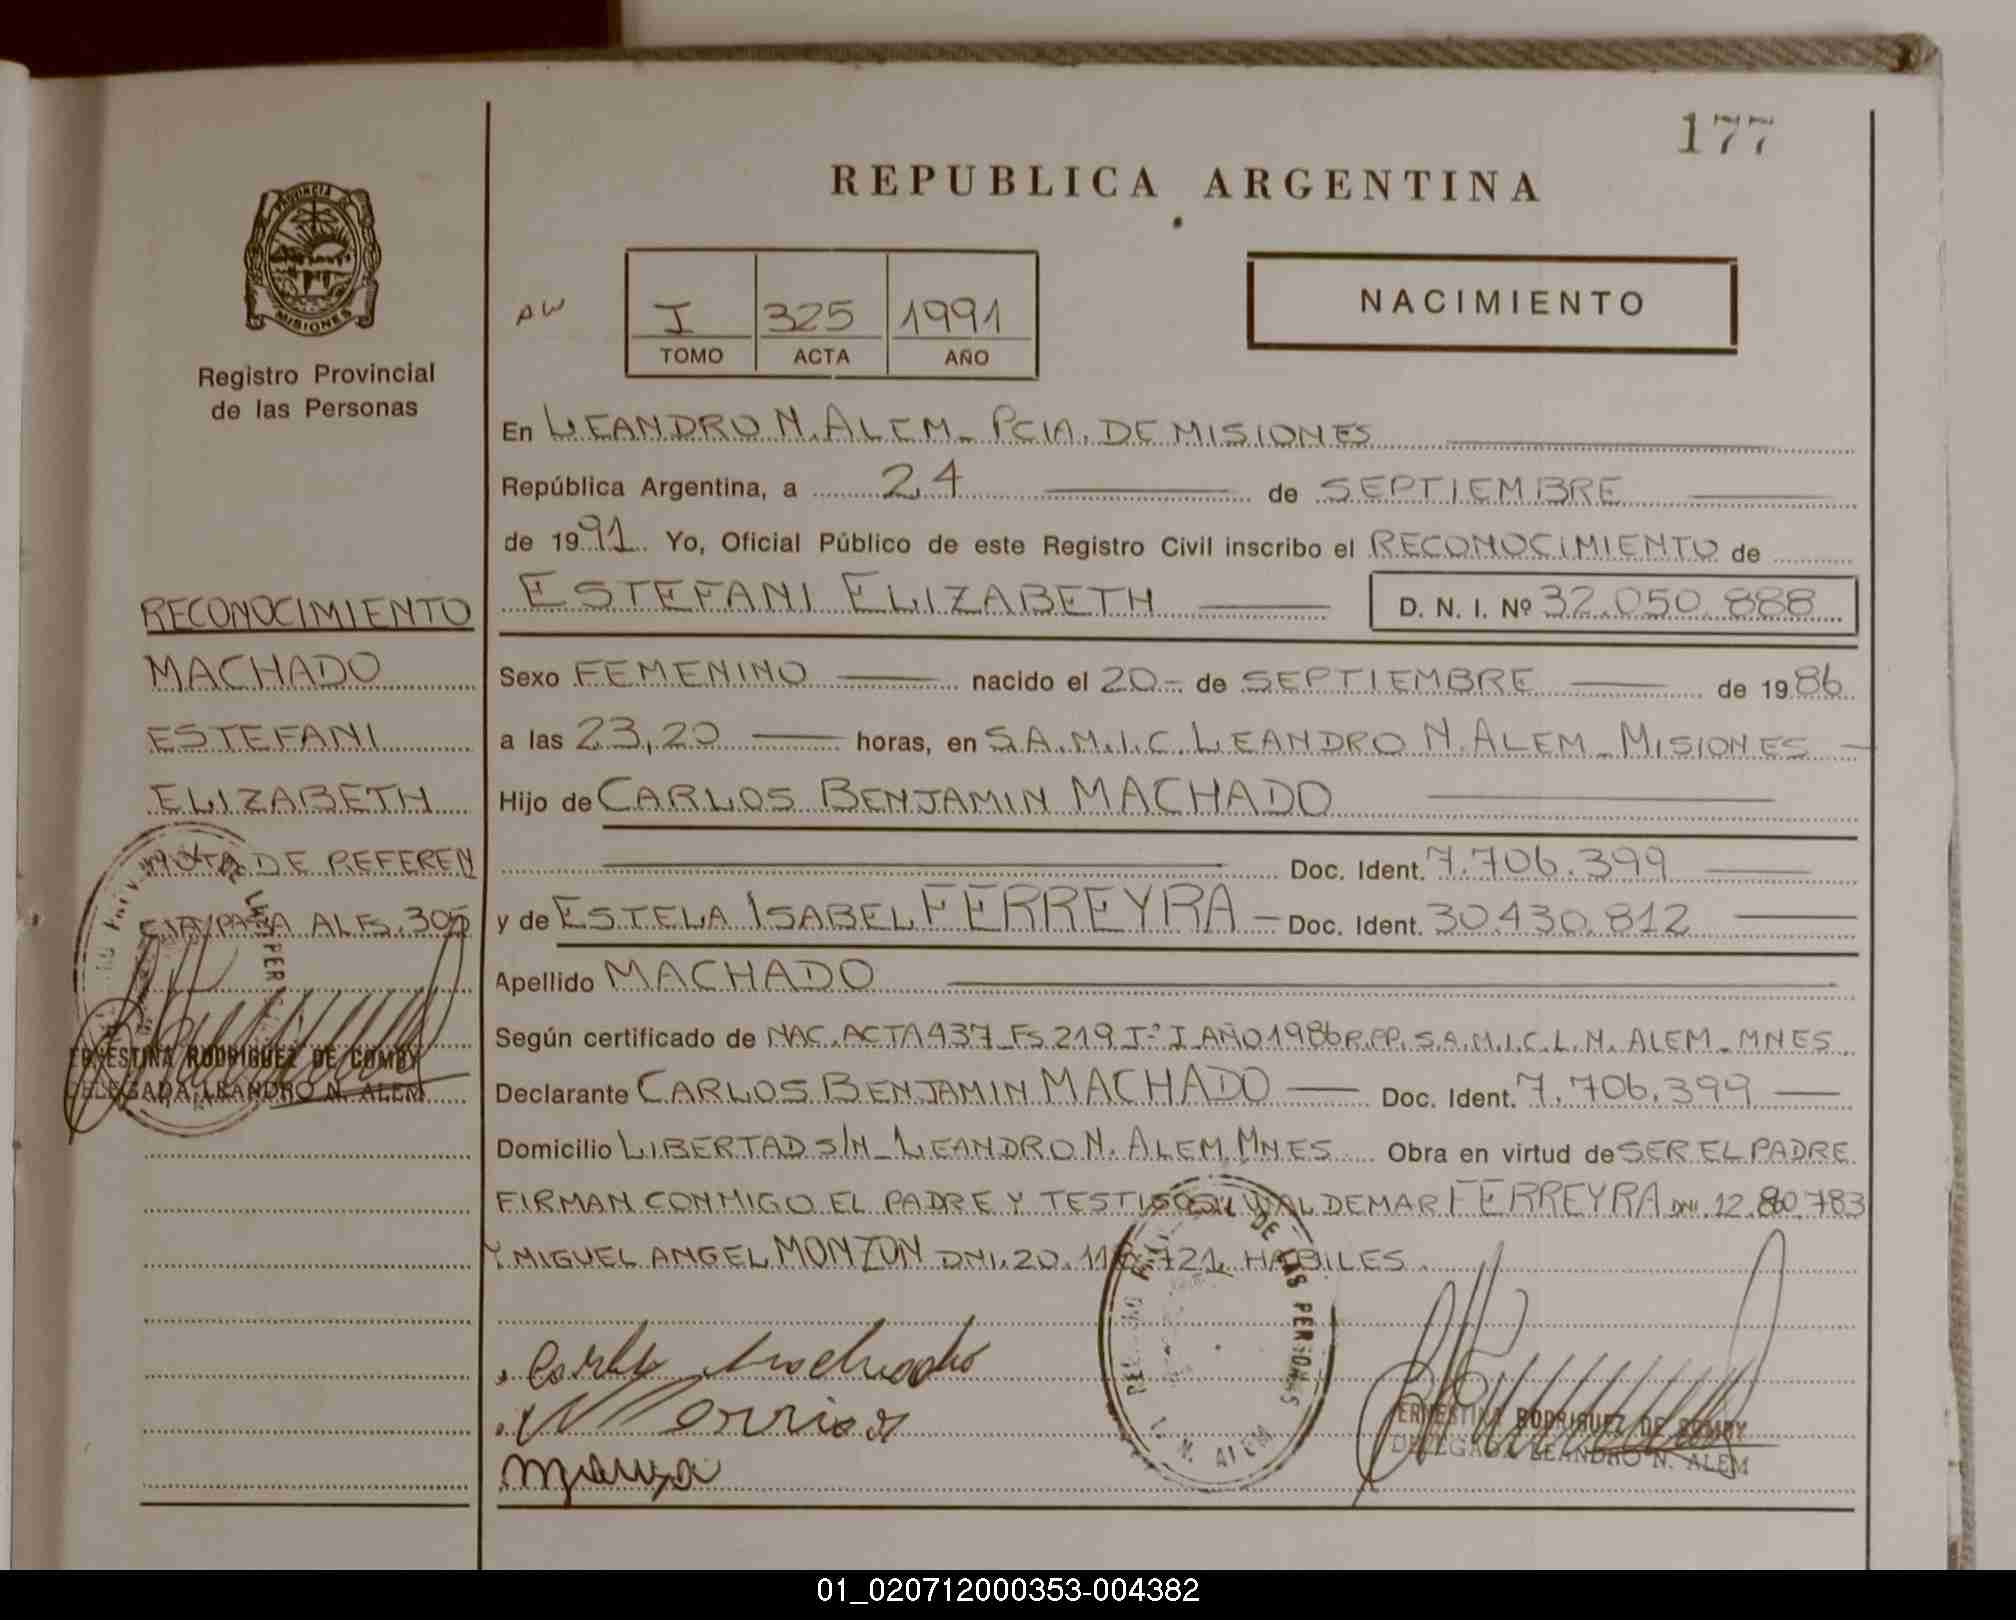 177
REPUBLICA ARGENTINA
PROVINCIA DE
MISIONES
Registro Provincial
de las Personas
AW
I 325 1991
TOMO ACTA AÑO
NACIMIENTO
En LEANDRO N. ALEM - PCIA. DE MISIONES
República Argentina, a 24 de SEPTIEMBRE
de 1991 Yo, Oficial Público de este Registro Civil inscribo el RECONOCIMIENTO de
ESTEFANI ELIZABETH D. N. I. Nº 32.050.888
Sexo FEMENINO nacido el 20 - de SEPTIEMBRE de 1986
a las 23,20 horas, en S.A.M.I.C. LEANDRO N. ALEM - MISIONES
Hijo de CARLOS BENJAMIN MACHADO
Doc. Ident. 7.706.399
y de ESTELA ISABEL FERREYRA - Doc. Ident. 30.430.812
Apellido MACHADO
Según certificado de NAC. ACTA 437 Fs 219 Tº I AÑO 1986 R.PP. S.A.M.I.C. L. N. ALEM - MNES
Declarante CARLOS BENJAMIN MACHADO Doc. Ident. 7.706.399
Domicilio LIBERTAD S/N - LEANDRO N. ALEM MNES Obra en virtud de SER EL PADRE
FIRMAN CONMIGO EL PADRE Y TESTIGOS WALDEMAR FERREYRA DNI. 12. 783
Y MIGUEL ANGEL MONZON DNI. 20. 721 HABILES
RECONOCIMIENTO
MACHADO
ESTEFANI
ELIZABETH
NOTA DE REFEREN
CIA PASA AL Fs. 305
ERNESTINA RODRIGUEZ DE COMBY
DELEGADA LEANDRO N. ALEM
Carlos Machado
DE LAS PERSONAS
L. N. ALEM
ERNESTINA RODRIGUEZ DE COMBY
DELEGADA LEANDRO N. ALEM
01_020712000353-004382